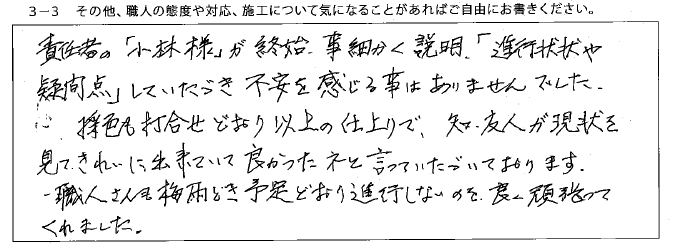 3-3 その他、職人の態度や対応、施工について気になることがあればご自由にお書きください。
責任者の「小林様」が終始、事細かく説明、「進行状状や
疑問点」していただき不安を感じる事はありませんでした。
採色も打合せどおり以上の仕上りで、知、友人が現状を
見て、きれいに出来ていて良かったネと言っていただいております。
職人さんも梅雨どき予定どおり進行しないのを、良く頑張って
くれました。